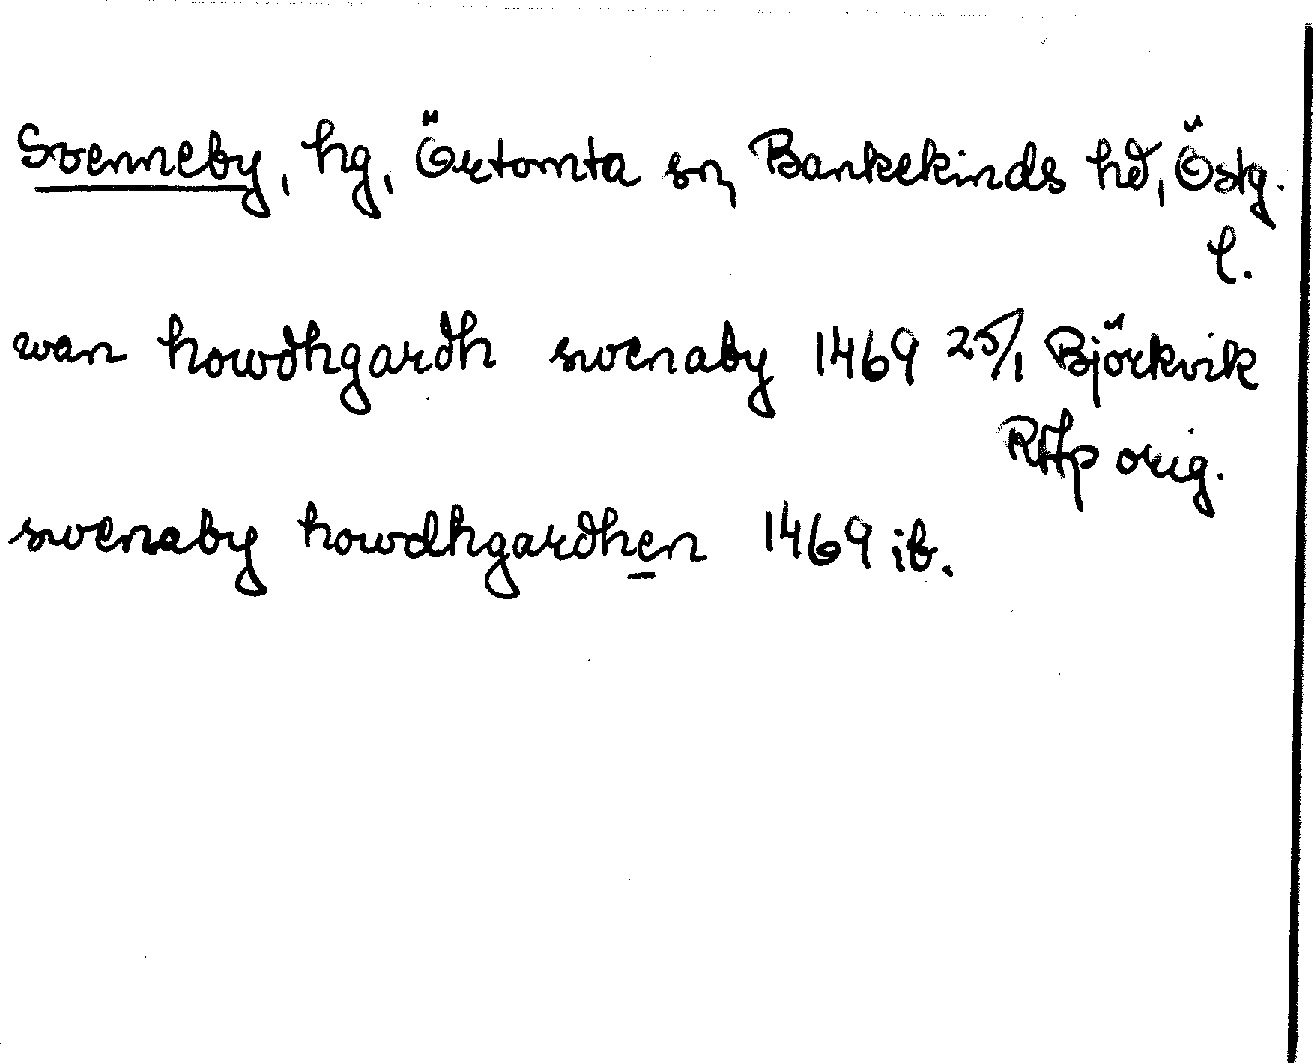 Svenneby, hg, Örtomta sn, Bankekinds hd, Östg.
l.
wan howdhgardh swenaby 1469 25/1 Björkvik
RAp orig.
swenaby howdhgardhen 1469 ib.